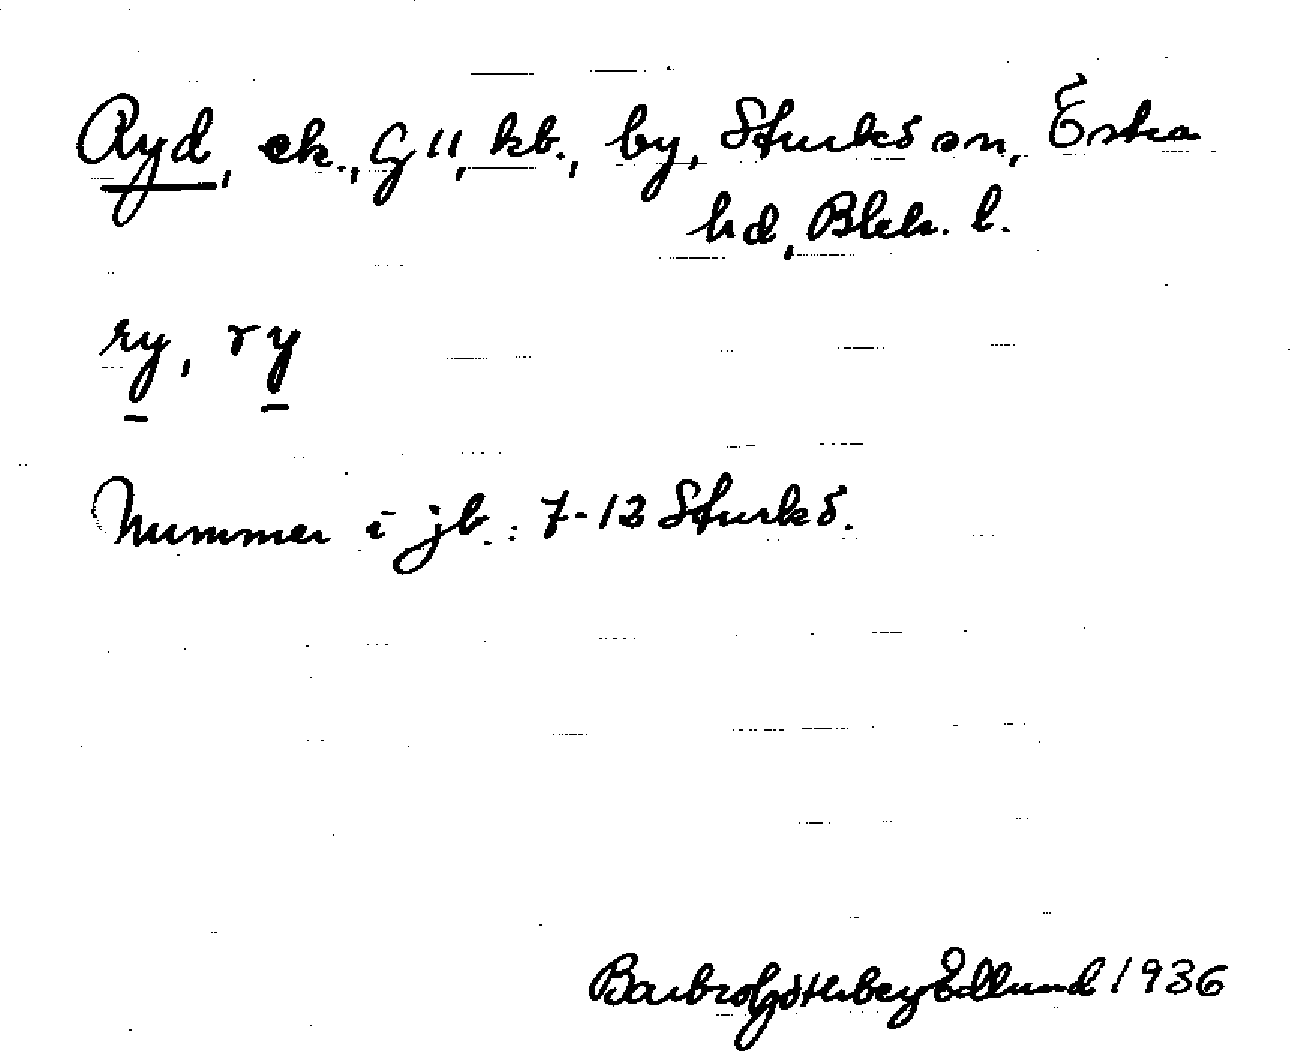 Ryd, ek., G11, kb., by, Sturkö sn, Östra
hd, Blek. l.
ry, ry
Nummer i jb.: 7-12 Sturkö.
Barbro Götherberg Edlund 1936